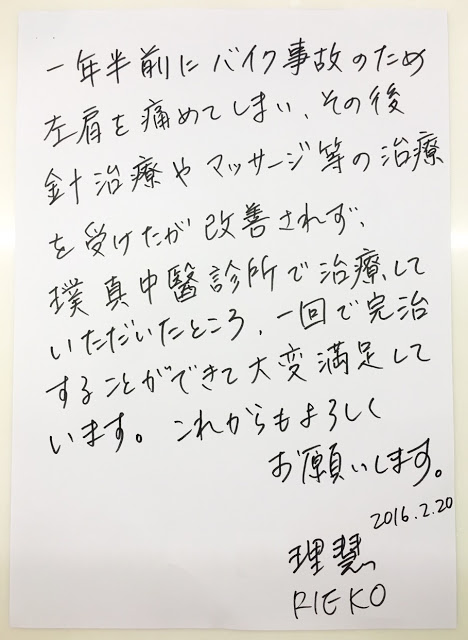 一年半前にバイク事故のため
左肩を痛めてしまい、その後
針治療やマッサージ等の治療
を受けたが改善されず、
璞真中醫診所で治療して
いただいたところ、一回で完治
することができて大変満足して
います。これからもよろしく
お願いします。
2016.2.20
理慧
RIEKO